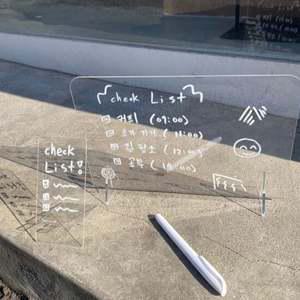 check List
커피 (09:00)
회사 가기 (11:00)
집 청소 (12:00)
공부 (14:00)
check
List!